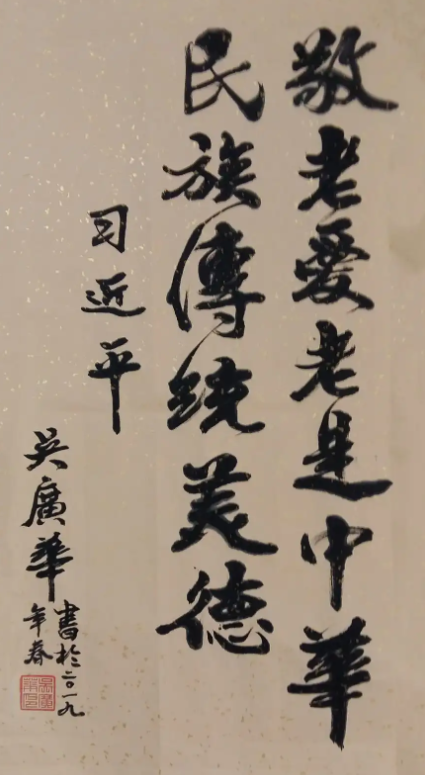 敬老爱老是中華
民族傳统美德
习近平
吴廣華
書於二〇一九
年春